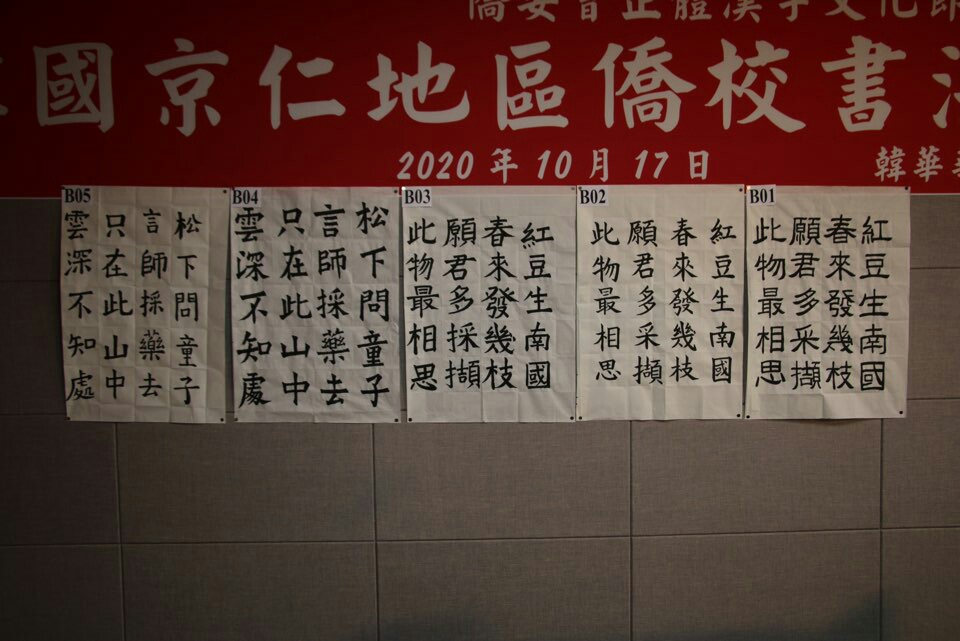 僑委會正體漢字文化
國京仁地區僑校書
2020 年 10 月 17 日
韓華
B01
紅豆生南國
春來發幾枝
願君多采擷
此物最相思
B02
紅豆生南國
春來發幾枝
願君多采擷
此物最相思
B03
紅豆生南國
春來發幾枝
願君多採擷
此物最相思
B04
松下問童子
言師採藥去
只在此山中
雲深不知處
B05
松下問童子
言師採藥去
只在此山中
雲深不知處